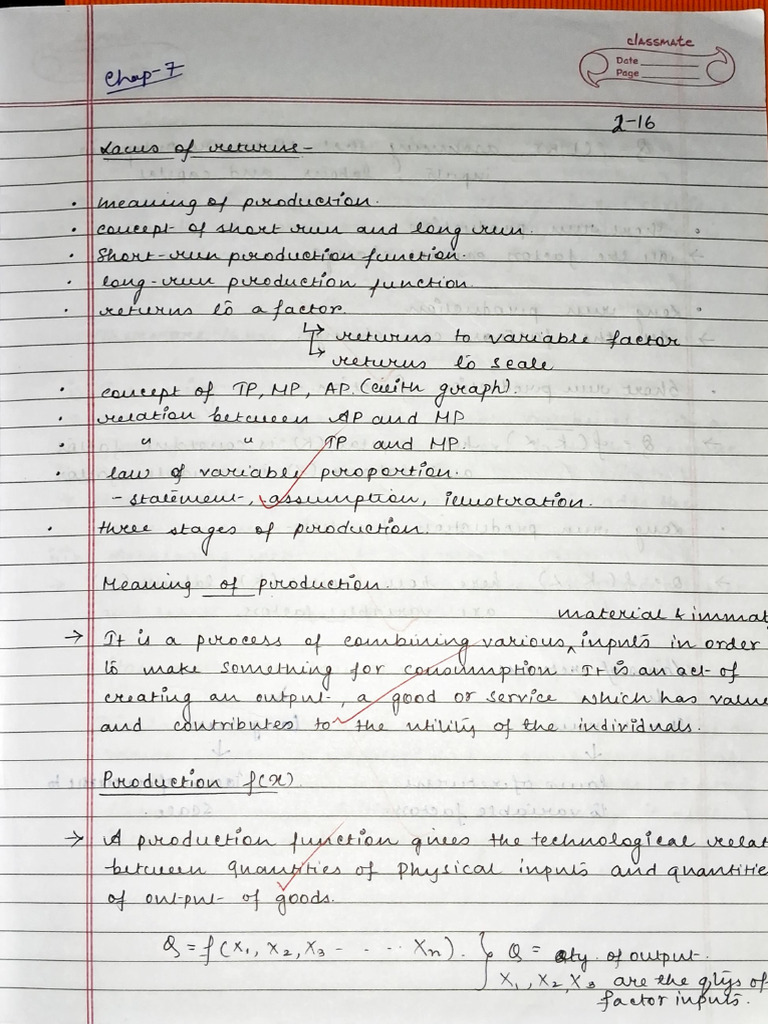 classmate
Date
Page
Chap-7
2-16
Laws of returns-
• meaning of production.
• concept of short run and long run.
• Short-run production function.
• long-run production function.
• returns to a factor.
↳ returns to variable factor
↳ returns to scale
• concept of TP, MP, AP. (with graph).
• relation between AP and MP
• " " TP and MP.
• law of variable proportion.
- statement, assumption, illustration.
• three stages of production.
Meaning of production.
material & immat
→ It is a process of combining various ^ inputs in order
to make something for consumption. It is an act of
creating an output, a good or service which has value
and contributes to the utility of the individuals.
Production f(x)
→ A production function gives the technological relat
between quantities of physical inputs and quantitie
of output of goods.
Q = f(X₁, X₂, X₃ - - - ·· Xn). } Q = qty. of output.
X₁, X₂, X₃ are the qtys of
factor inputs.